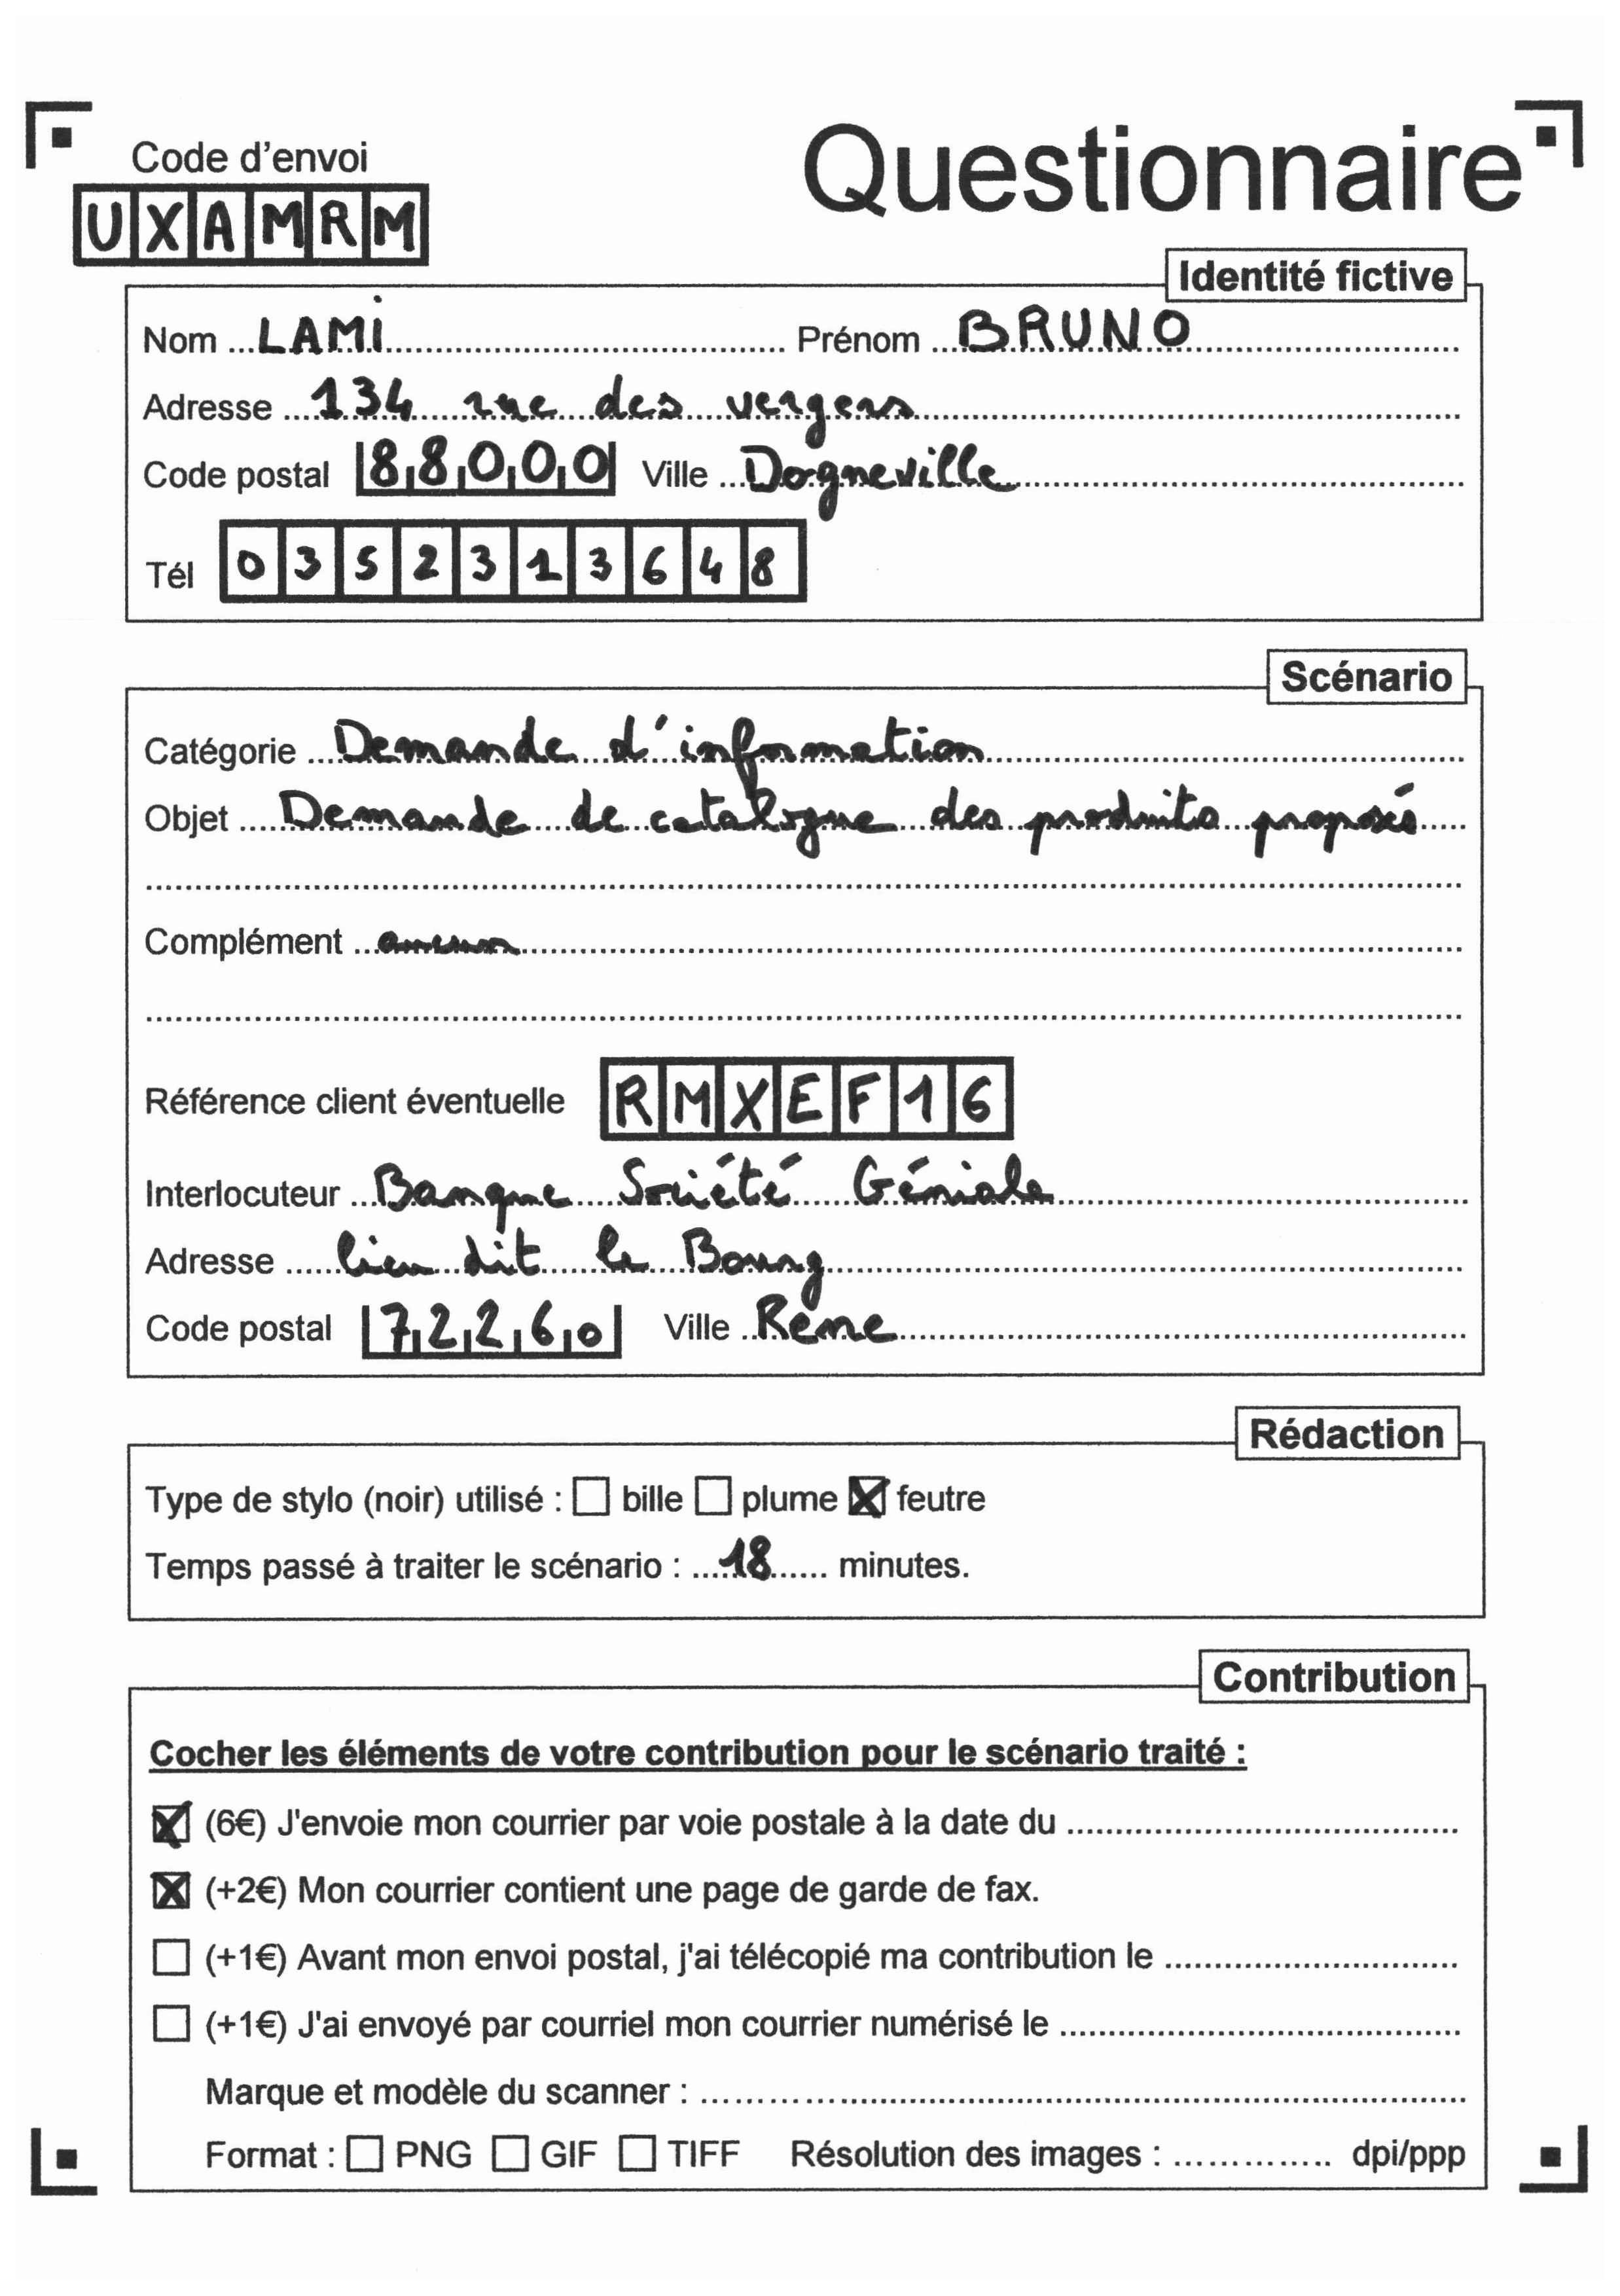 Code d'envoi
Questionnaire
UXAMRM
Identité fictive
Nom LAMI Prénom BRUNO
Adresse 134 rue des vergers
Code postal 88000 Ville Dogneville
Tél 0352313648
Scénario
Catégorie Demande d'information
Objet Demande de catalogue des produits proposés
Complément aucun
Référence client éventuelle RMXEF16
Interlocuteur Banque Société Géniale
Adresse lieu dit le Bourg
Code postal 72260 Ville Rene
Rédaction
Type de stylo (noir) utilisé : ☐ bille ☐ plume ☒ feutre
Temps passé à traiter le scénario : 18 minutes.
Contribution
Cocher les éléments de votre contribution pour le scénario traité :
☒ (6€) J'envoie mon courrier par voie postale à la date du
☒ (+2€) Mon courrier contient une page de garde de fax.
☐ (+1€) Avant mon envoi postal, j'ai télécopié ma contribution le
☐ (+1€) J'ai envoyé par courriel mon courrier numérisé le
Marque et modèle du scanner :
Format : ☐ PNG ☐ GIF ☐ TIFF Résolution des images : dpi/ppp